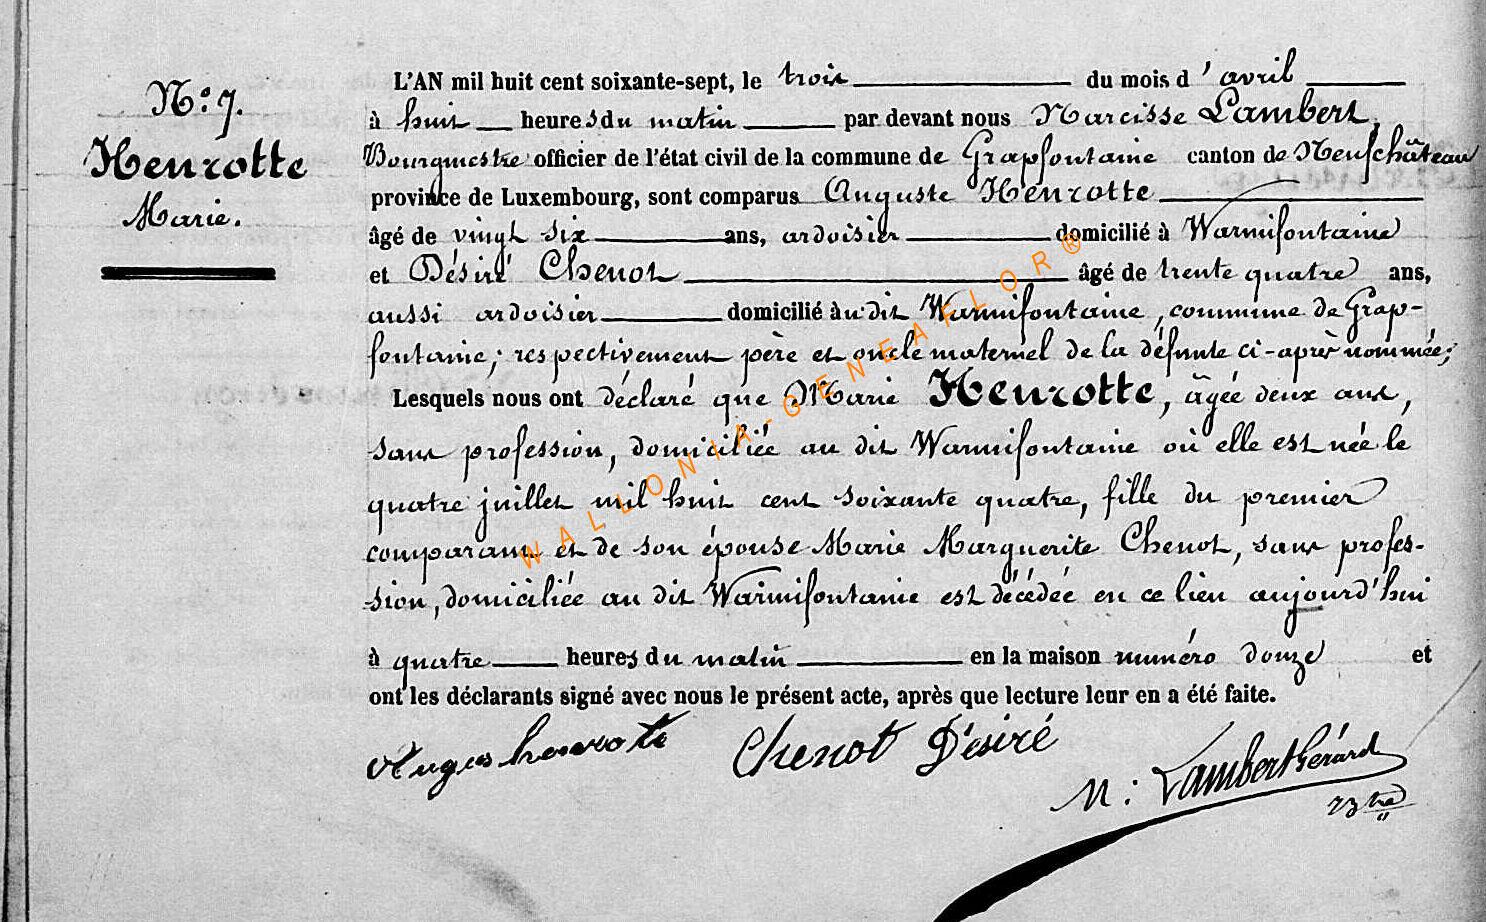 N.º 7.
Henrotte
Marie.
L'AN mil huit cent soixante-sept, le trois du mois d'avril
à huit heures du matin par devant nous Narcisse Lambert,
Bourgmestre officier de l'état civil de la commune de Grapfontaine canton de Neufchâteau
province de Luxembourg, sont comparus Auguste Henrotte
âgé de vingt six ans, ardoisier domicilié à Warmifontaine
et Désiré Chenot âgé de trente quatre ans,
aussi ardoisier domicilié àu dit Warmifontaine, commune de Grap-
fontaine; respectivement père et oncle maternel de la défunte ci-après nommée;
Lesquels nous ont déclaré que Marie Henrotte, âgée deux ans,
sans profession, domiciliée au dit Warmifontaine où elle est née le
quatre juillet mil huit cent soixante quatre, fille du premier
comparant et de son épouse Marie Marguerite Chenot, sans profes-
sion, domiciliée au dit Warmifontaine est décédée en ce lieu aujourd'hui
à quatre heures du matin en la maison numéro douze et
ont les déclarants signé avec nous le présent acte, après que lecture leur en a été faite.
henrote Chenot Désiré
N: Lambert Gérard
WALLONIA-GENEAFLOR®